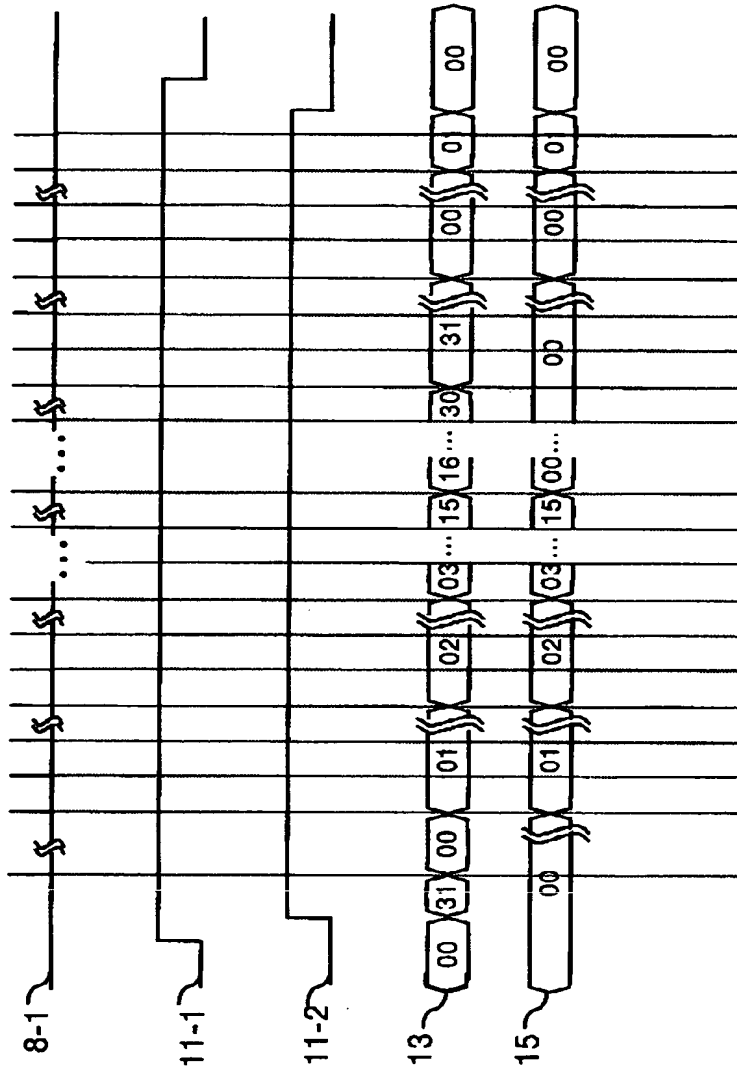 8-1 ... ...
11-1
11-2
13 00 31 00 01 02 03 ... 15 16 ... 30 31 00 01 00
15 00 01 02 03 ... 15 00 ... 00 00 01 00